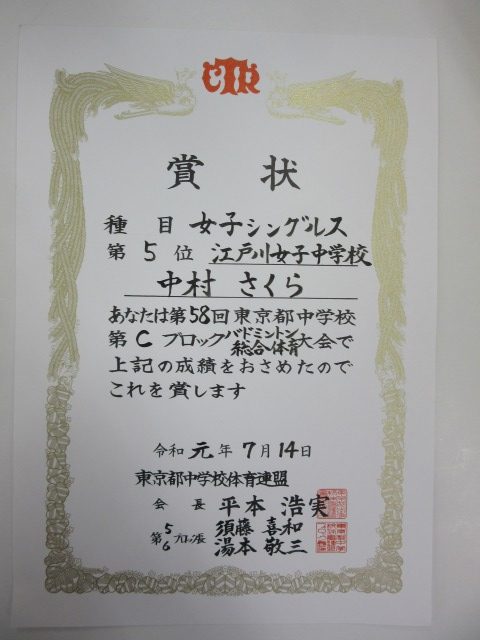 賞状
種目 女子シングルス
第5位 江戸川女子中学校
中村 さくら
あなたは第58回東京都中学校
第Cブロックバドミントン総合体育大会で
上記の成績をおさめたので
これを賞します
令和元年7月14日
東京都中学校体育連盟
会長 平本 浩実
第5ブロック長 須藤 喜和
第6ブロック長 湯本 敬三